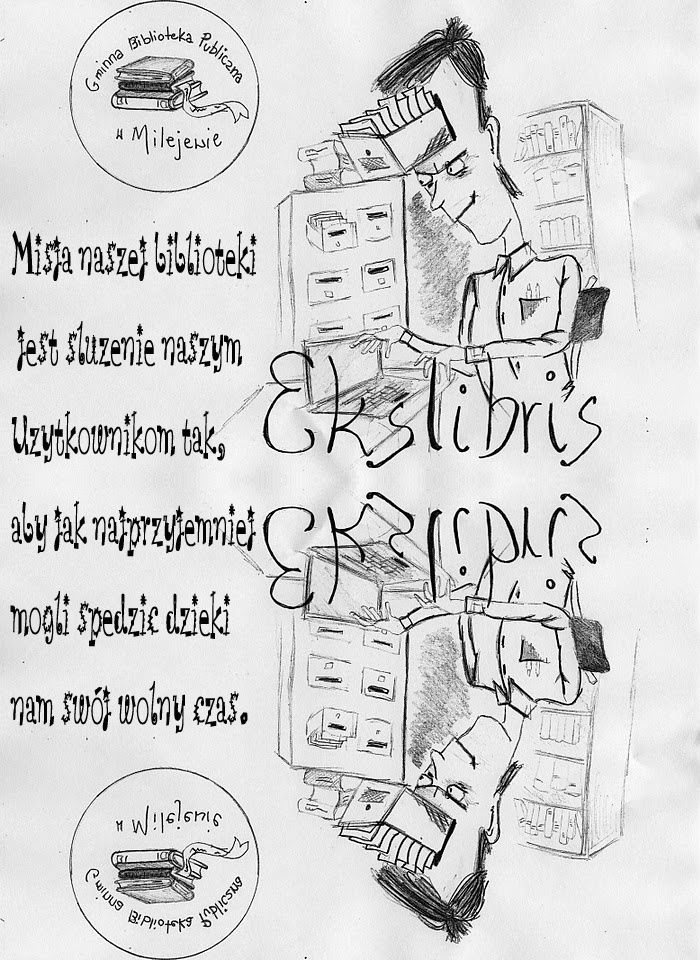 Gminna Biblioteka Publiczna
w Milejewie
Misja naszej biblioteki
jest sluzenie naszym
Uzytkownikom tak,
aby jak najprzyjemniej
mogli spedzic dzieki
nam swój wolny czas.
Ekslibris
Ekslibris
w Milejewie
Gminna Biblioteka Publiczna